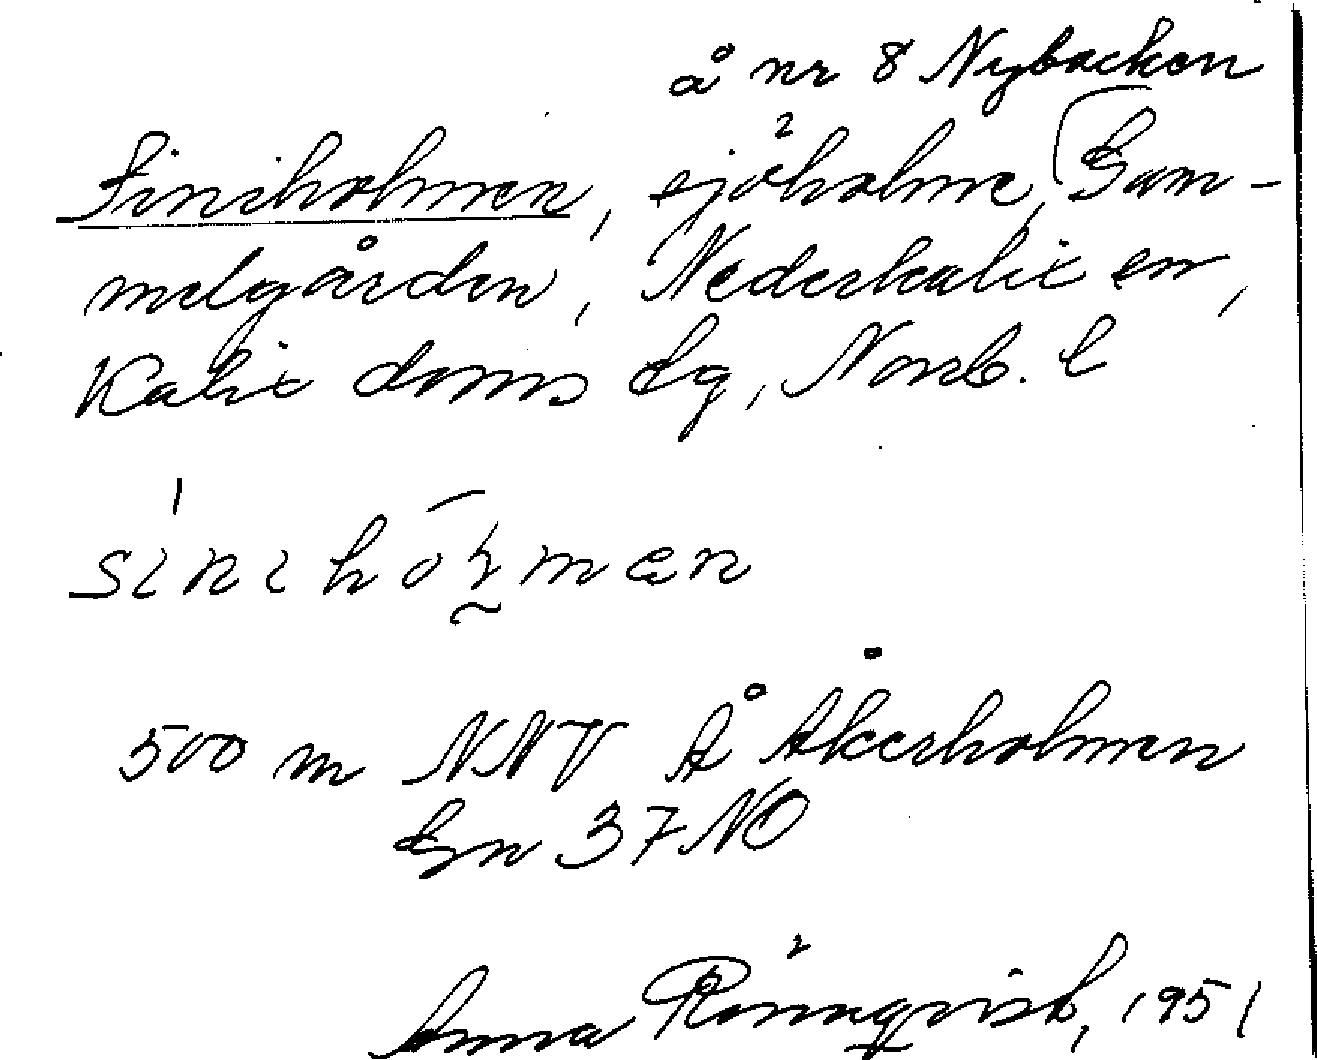 å nr 8 Nybacken
Siniholmen, sjöholme, Gam-
melgården, Nederkalix sn,
Kalix doms tg, Norrb. l
sinihōl̰mæn
500 m NNV Å Åkerholmen
Gn 37 NO
Anna Rönnqvist, 1951